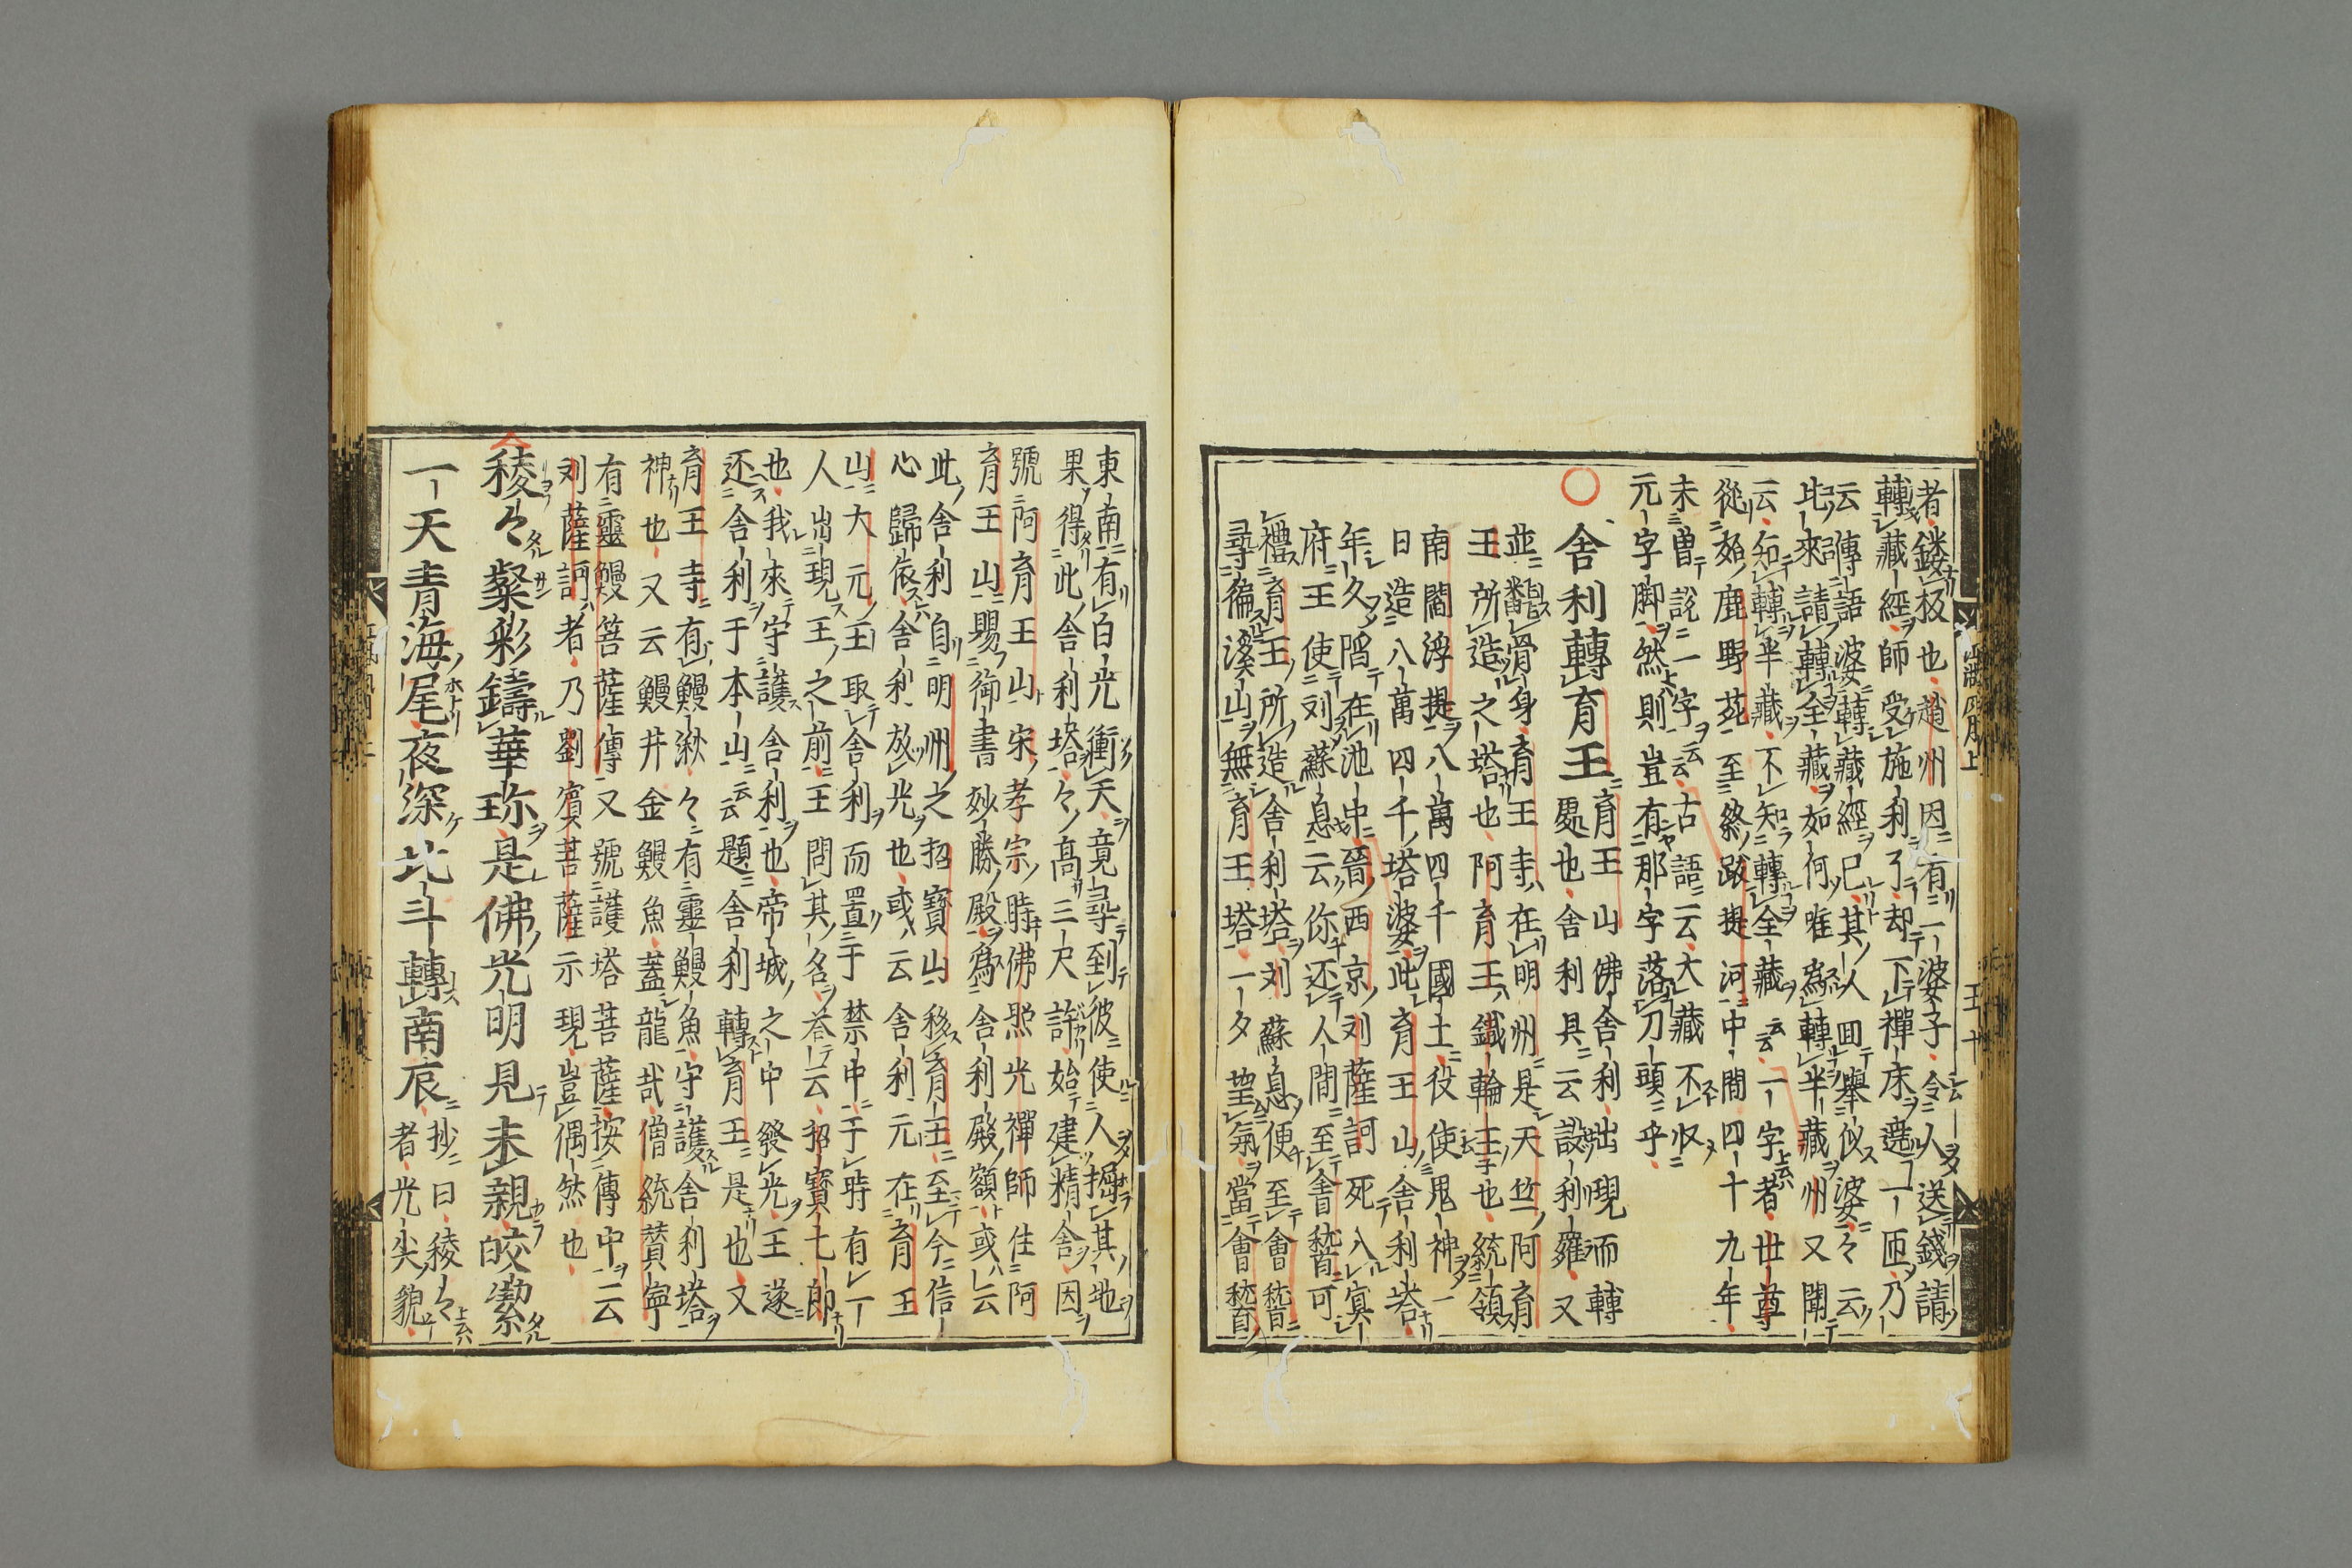 者鏤板也趙州因有一婆子令人送錢請
轉藏經師受施利了却下禪床遶一匝乃
云傳語婆轉藏經已其人囬舉似婆々云
比來請轉全藏如何唯爲轉半藏州又聞
云知轉半藏不知轉全藏云云一字者世尊
從始鹿野苑至終跋提河中間四十九年
未曽說一字云云古語云大藏不収
元字脚然則豈有那字落刀頭乎
舍利轉育王
育王山佛舍利出現而轉
處也舍利具云設利羅又
並翻骨身育王寺在明州是天竺阿育
王所造之塔也阿育王鐵輪王也統領
南閻浮提八萬四千國土役使鬼神一
日造八萬四千塔婆此育王山舍利塔
年久陷在池中晉西京刘薩訶死入冥
府王使刘蘇息云你还人間至會稽可
禮育王所造舍利塔刘蘇息便至會稽
尋徧溪山無育王塔一夕望氣當會稽
東南有白光衝天竟尋到彼使人掘其地
果得此舍利塔々高三尺許始建精舍因
號阿育王山宋孝宗時佛照光禪師住阿
育王山賜御書妙勝殿爲舍利殿額或云
此舍利自明州之招寶山移育王至今信
心歸依舍利放光也或云舍利元在育王
山大元王取舍利而置于禁中于時有一
人出現王之前王問其名答云招寶七郎
也我來守護舍利也帝城之中發光王遂
还舍利于本山云云題舍利轉育王是也又
育王寺有鰻湫々有靈鰻魚守護舍利塔
神也又云鰻井金鰻魚蓋龍哉僧統賛寧
有靈鰻菩薩傳又號護塔菩薩按傳中云
刘薩訶者乃劉賓菩薩示現豈偶然也
稜々粲彩鑄華珎是佛光明見未親皎潔
一天青海尾夜深北斗轉南辰
抄曰稜々
者光尖貌